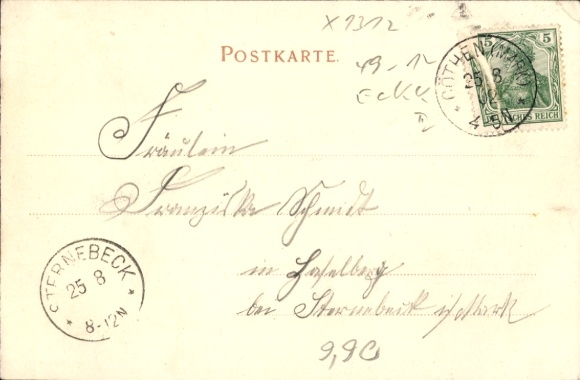 X 1312
POSTKARTE.
49-12
Ecke
5 5
CÖTHEN (MARK)
25 8
02
4-5N
DEUTSCHES REICH
Fräulein
Franziska Schmidt
in Haselberg
bei Sternebeck i/Mark
STERNEBECK
25 8
8-12N
9,90